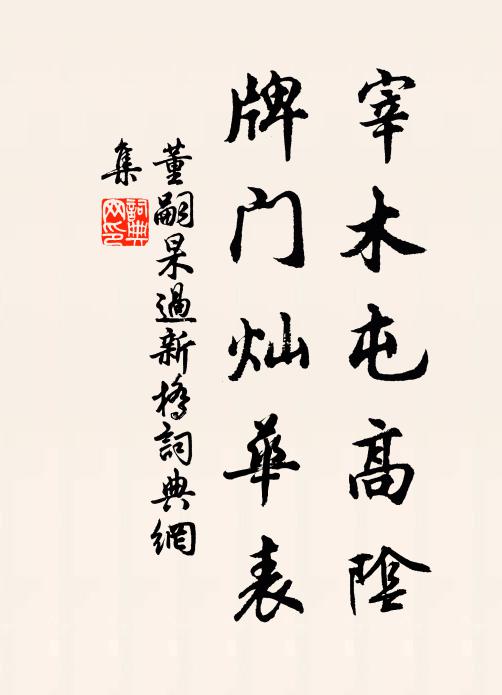 宰木屯高陰
牌门灿華表
董嗣杲過新橋詞典網
集
詞典
网印